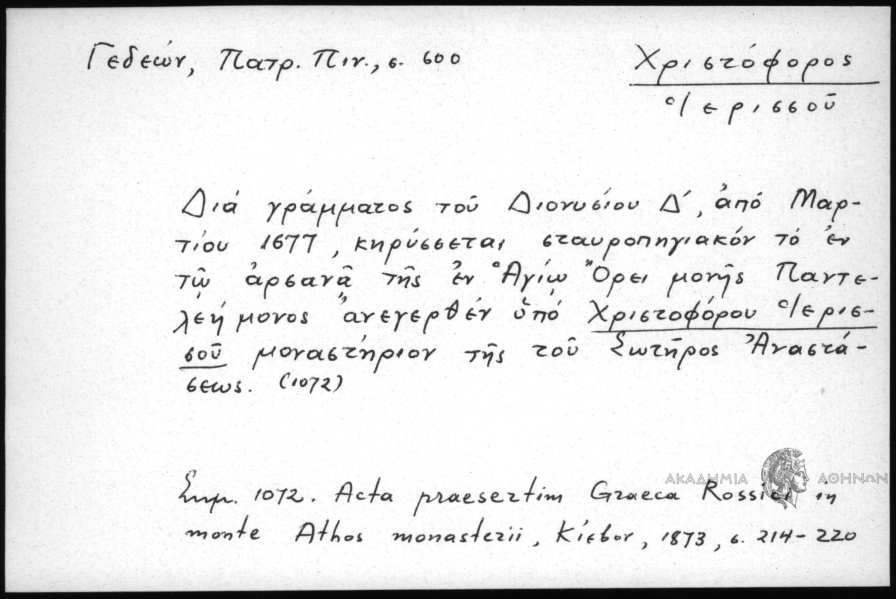 Γεδεών, Πατρ. Πιν., σ. 600
Χριστόφορος
Ἱερισσοῦ
Διά γράμματος τοῦ Διονυσίου Δ', ἀπό Μαρ-
τίου 1677, κηρύσσεται σταυροπηγιακόν τό ἐν
τῷ ἀρσανᾷ τῆς ἐν Ἁγίῳ Ὄρει μονῆς Παντε-
λεήμονος ἀνεγερθέν ὑπό Χριστοφόρου Ἱερισ-
σοῦ μοναστήριον τῆς τοῦ Σωτῆρος Ἀναστά-
σεως. (1072)
ΑΚΑΔΗΜΙΑ ΑΘΗΝΩΝ
Σημ. 1072. Acta praesertim Graeca Rossici in
monte Athos monasterii, Κίεβον, 1873, σ. 214-220